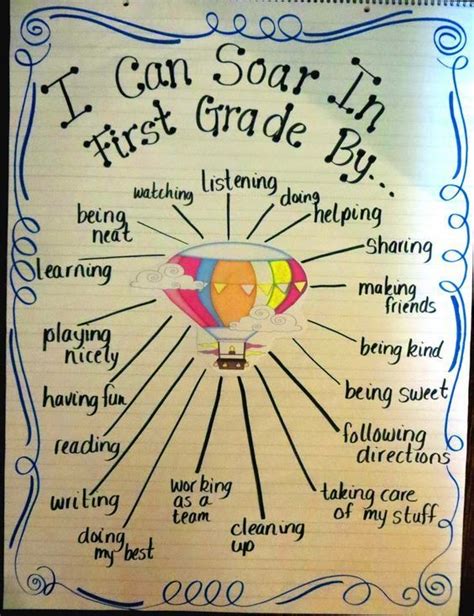 I Can Soar In
First Grade By...
listening
doing
helping
sharing
making
friends
being kind
being sweet
following
directions
taking care
of my stuff
cleaning
up
working
as a
team
doing
my best
writing
reading
having fun
playing
nicely
learning
being
neat
watching